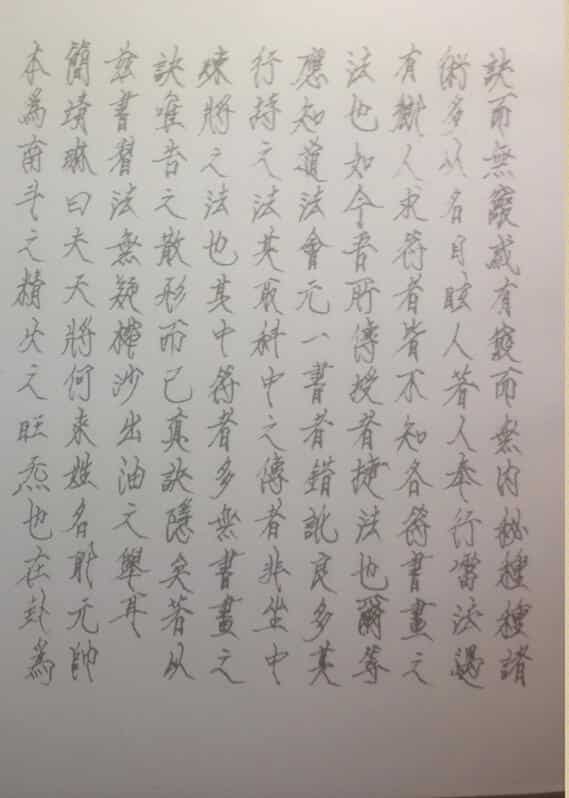 訣而無竅或有竅而無內秘種種諸
術多以名目眩人若人奉行雷法遇
有斷人求符者皆不知各符書畫之
法也如今吾所傳授者捷法也爾等
應知道法會元一書者錯訛良多其
行持之法其取科中之傳者非坐中
煉將之法也其中符者多無書畫之
訣唯告之散形而已真訣隱矣若从
茲書督法無疑榨沙出油之舉耳
簡靖琳曰夫天將何来姓名耶元帥
本為南斗之精火之旺炁也在卦為